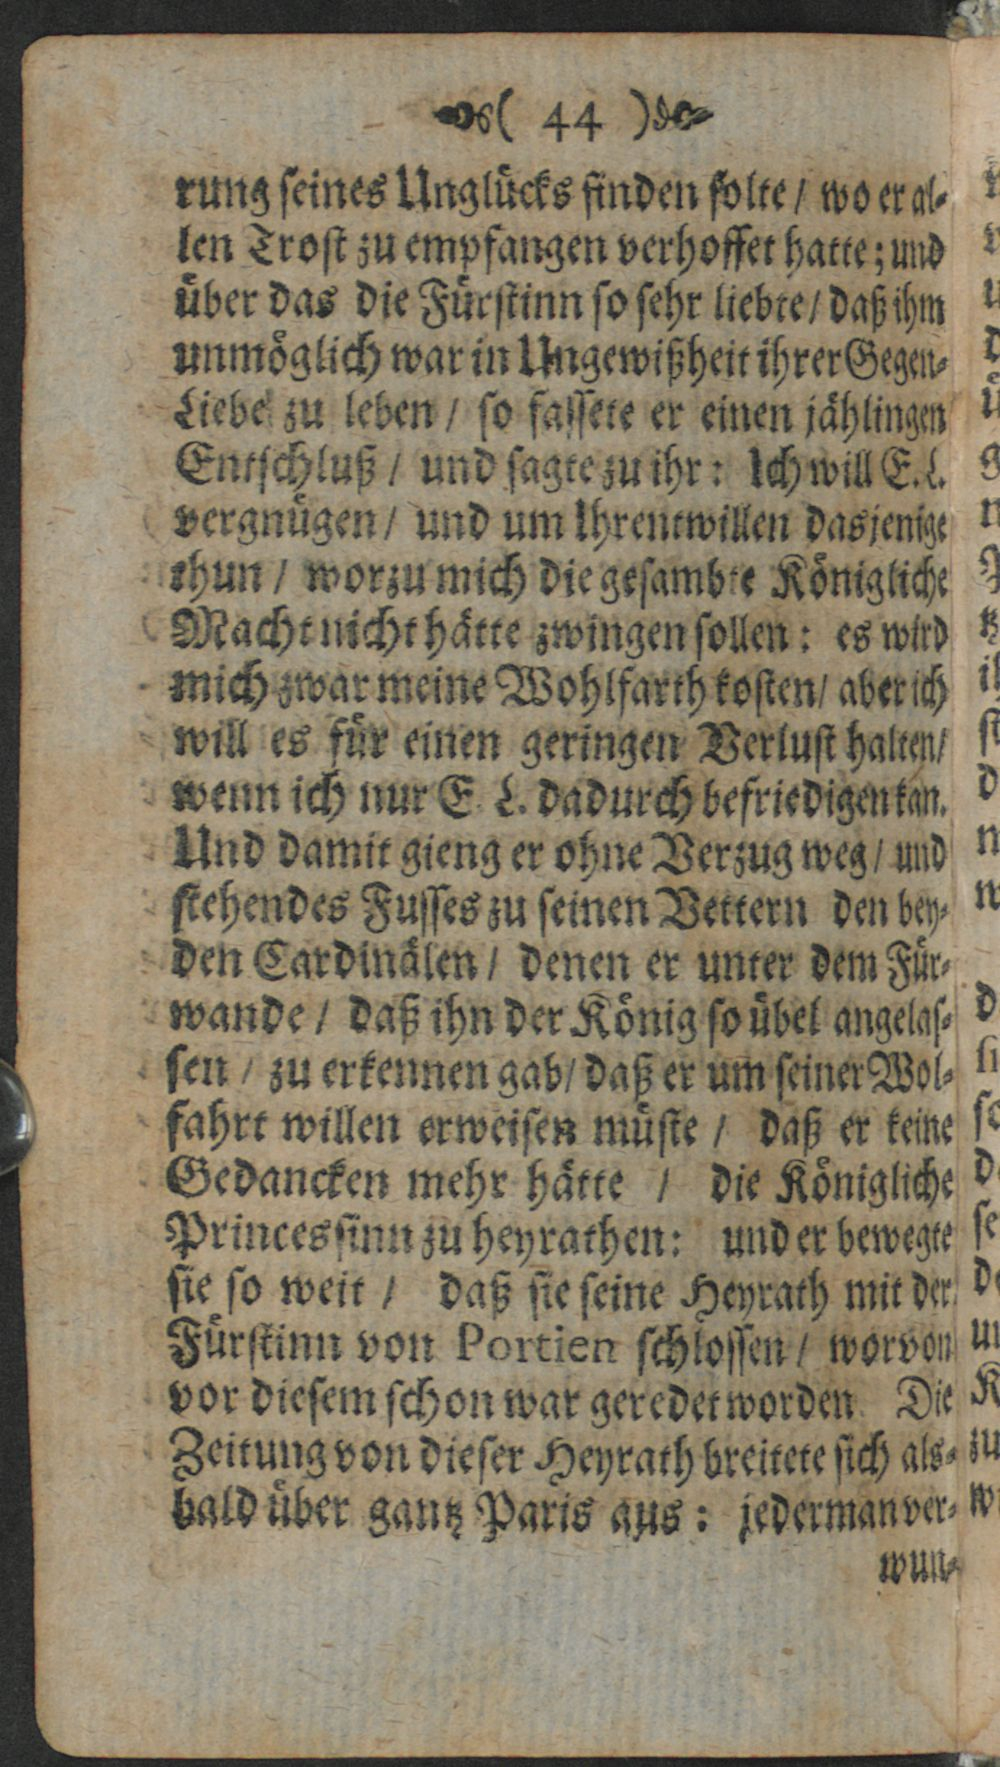 ( 44 )
rung seines Unglücks finden solte / wo er al-
len Trost zu empfangen verhoffet hatte; und
über das die Fürstinn so sehr liebte / daß ihm
unmöglich war in Ungewißheit ihrer Gegen-
Liebe zu leben / so fassete er einen jählingen
Entschluß / und sagte zu ihr: Ich will E. L.
vergnügen / und um Ihrentwillen dasjenige
thun / worzu mich die gesambte Königliche
Macht nicht hätte zwingen sollen: es wird
mich zwar meine Wohlfarth kosten / aber ich
will es für einen geringen Verlust halten /
wenn ich nur E. L. dadurch befriedigen kan.
Und damit gieng er ohne Verzug weg / und
stehendes Fusses zu seinen Vettern den bey-
den Cardinälen / denen er unter dem Für-
wande / daß ihn der König so übel angelas-
sen / zu erkennen gab / daß er um seiner Wol-
fahrt willen erweisen müste / daß er keine
Gedancken mehr hätte / die Königliche
Princessinn zu heyrathen: und er bewegte
sie so weit / daß sie seine Heyrath mit der
Fürstinn von Portien schlossen / worvon
vor diesem schon war geredet worden. Die
Zeitung von dieser Heyrath breitete sich als-
bald über gantz Paris aus: jederman ver-
wun-